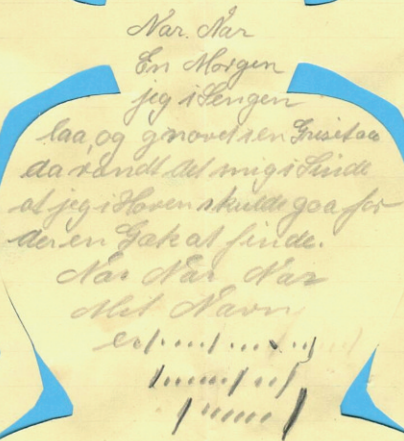 Nar. Nar
En Morgen
jeg i Sengen
laa, og gnoved en Grisetaa
da randt det mig i Sinde
at jeg i Haven skulde gaa for
der en Gæk at finde.
Nar Nar Nar
Mit Navn